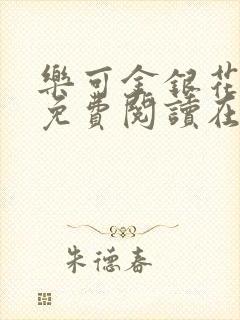 樂可金銀花
免費閱讀在
朱德春